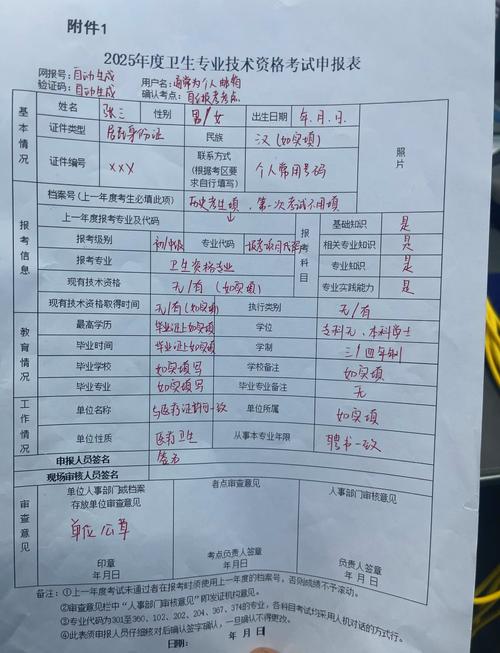 附件1
2025年度卫生专业技术资格考试申报表
网报号：自动生成 用户名：通常为个人邮箱
验证码：自动生成 确认考点：自己报考考点
基本情况
姓名 张三 性别 男/女 出生日期 年.月.日.
照片
证件类型 居民身份证 民族 汉(如实填)
证件编号 xxx 联系方式(根据考区要求自行填写) 个人常用号码
报考信息
档案号(上一年度考生必填此项) 历史考生填，第一次考试不用填
上一年度报考专业及代码
报考科目
基础知识 是
报考级别 初/中级 专业代码 相关专业知识 是
报考专业 卫生资格专业 专业知识 是
现有技术资格 无/有(如实填) 专业实践能力 是
现有技术资格取得时间 无/有(如实填) 执行类别 无/有
教育情况
最高学历 毕业证上如实填 学位 专科无、本科学士
毕业时间 毕业证上如实填 学制 三/四年制
毕业学校 如实填写 学校备注 如实填
毕业专业 如实填写 毕业专业备注 无
工作情况
单位名称 与医疗证明一致 单位所属 如实填
单位性质 医疗卫生 从事本专业年限 聘书一致
申报人员签名 签名
现场审核人员签名
审查意见
单位人事部门或档案存放单位审查意见 考点审查意见 人事部门审核意见
单位公章
印章 考点负责人签章 负责人签章
年月日 年月日 年月日
备注：①上一年度考试未通过者在报考时须使用上一年度的档案号，否则成绩不予滚动。
②审查意见栏中“人事部门审核意见”即发证机构意见。
③专业代码为301至360、102、202、204、367、374的专业，各科目考试均采用人机对话的方式进行。
④此表须申报人员仔细核对后确认签字确认，一旦确认不得更改。
日期： 年月日